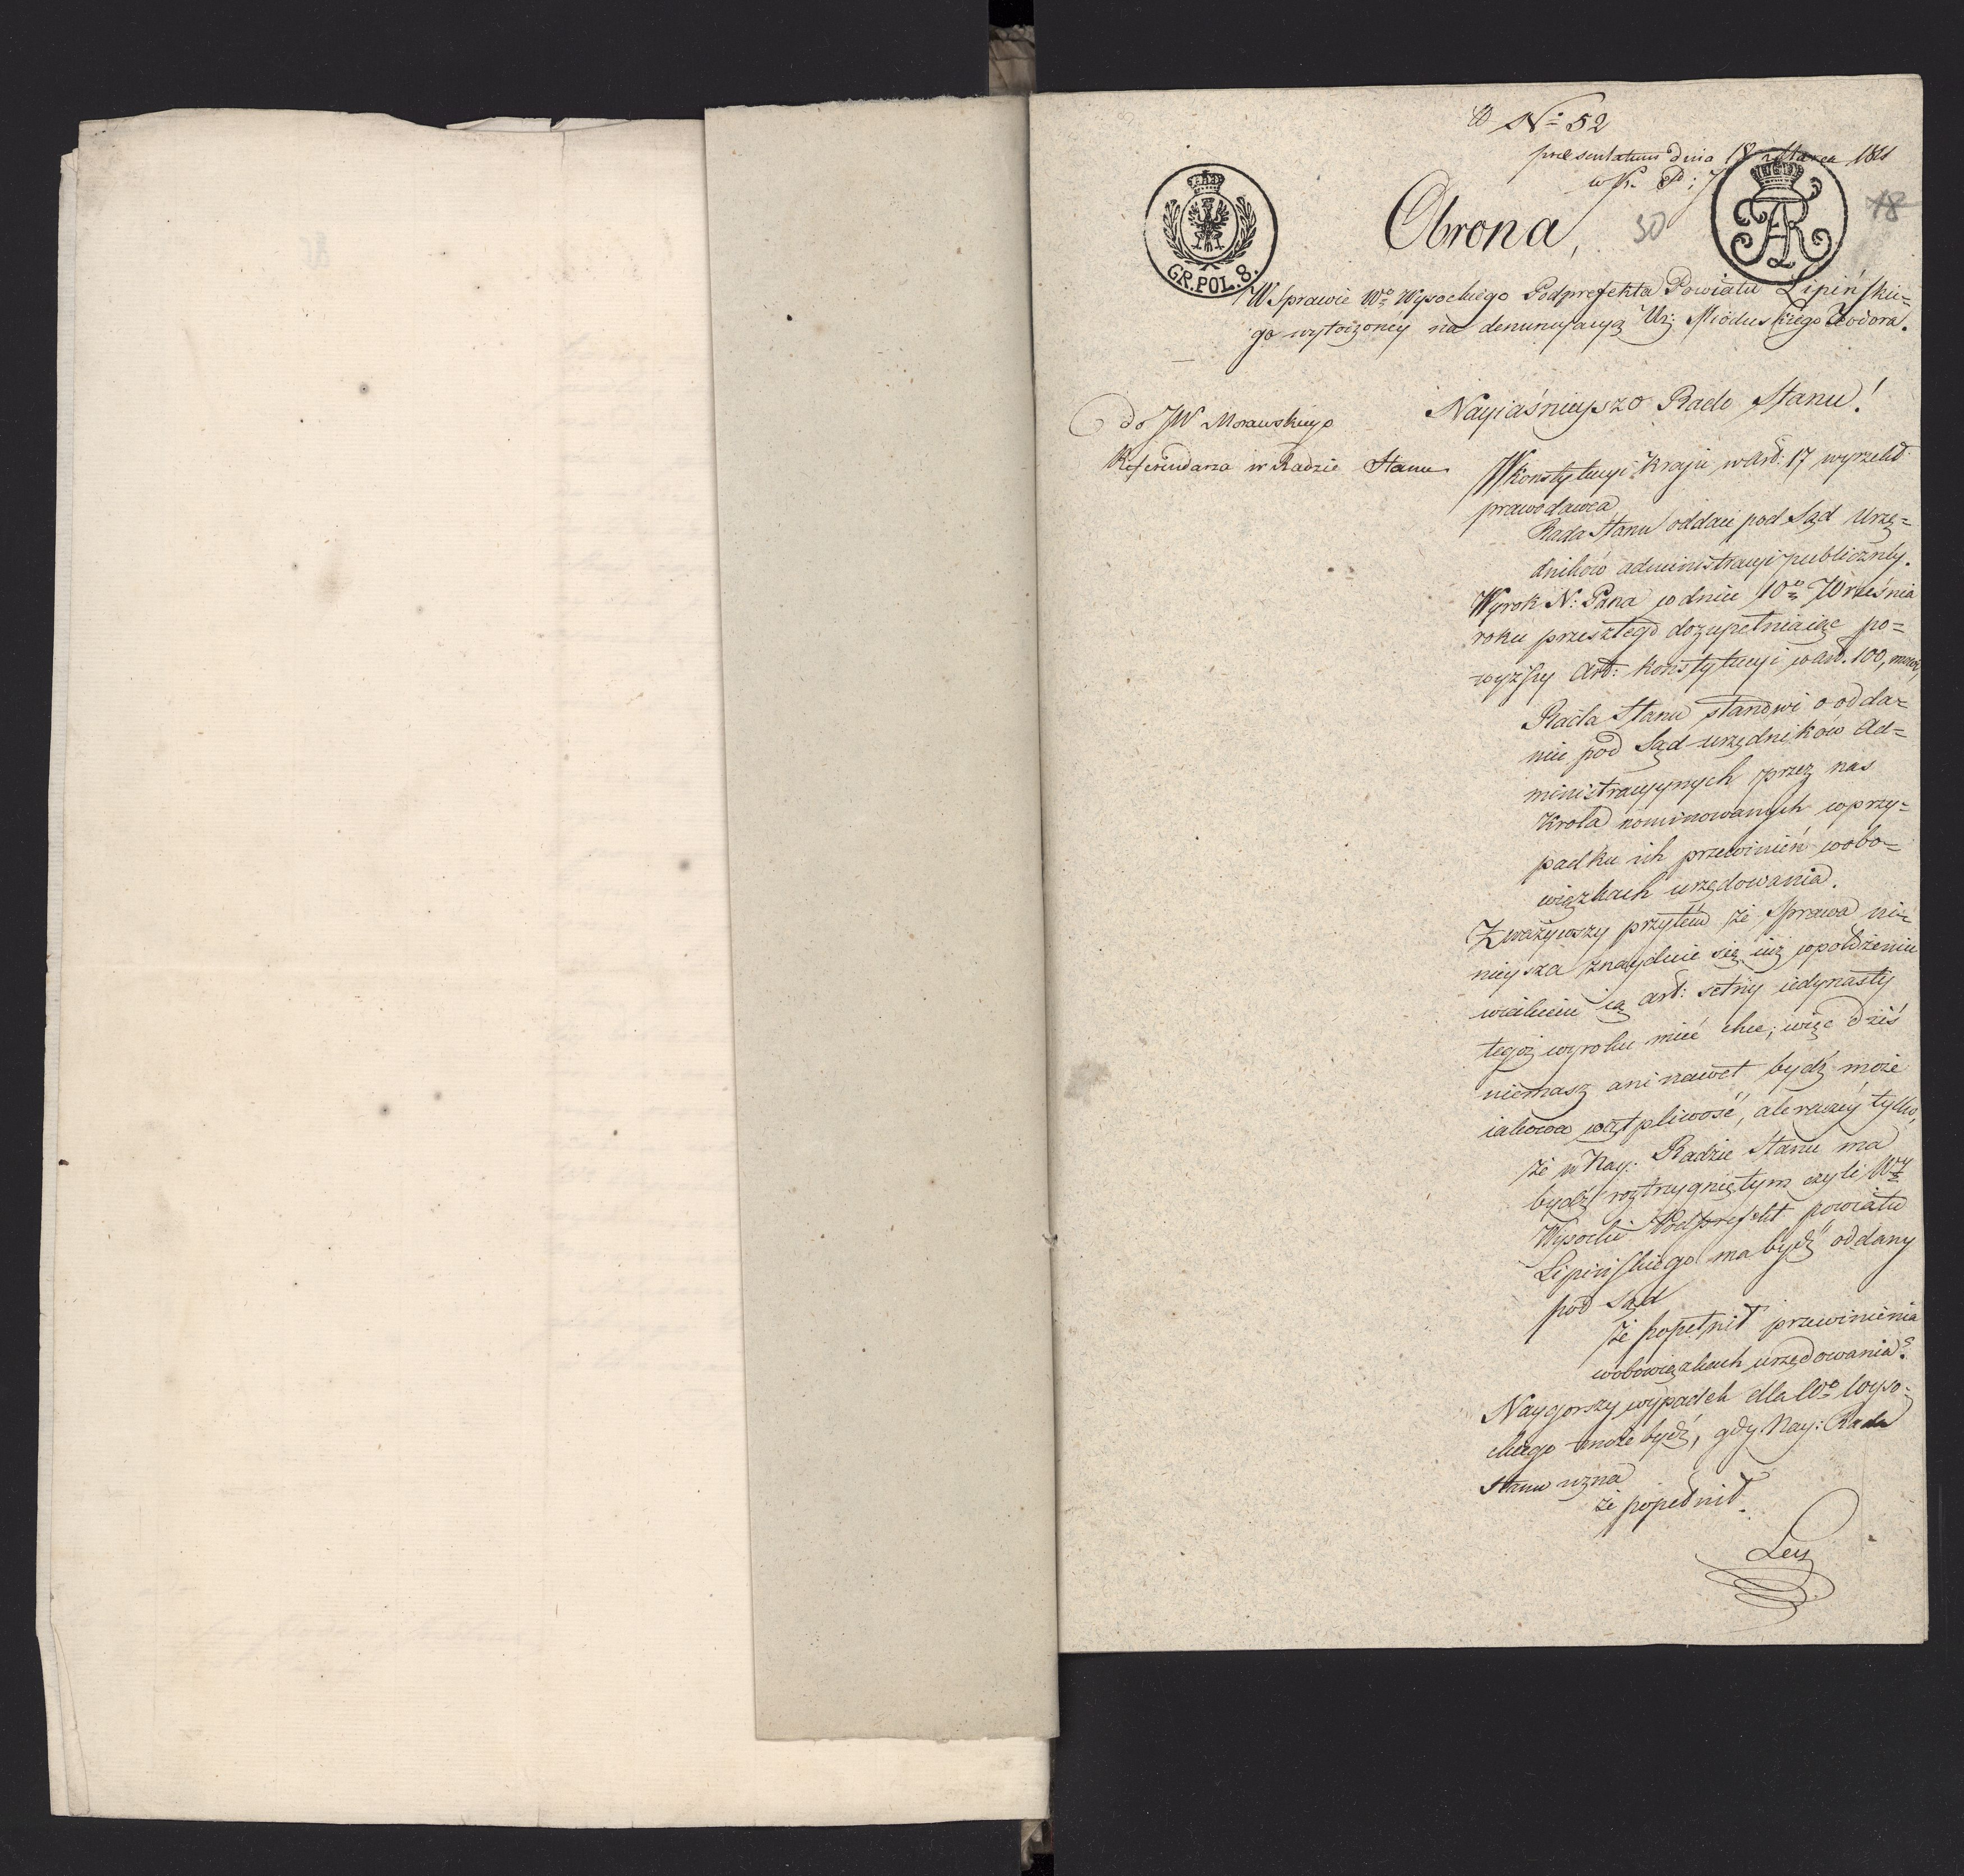 N: 52
praesentatum dnia 18 Marca 1811
Obrona,
50
18
GR. POL. 8.
W Sprawie Wo Wysockiego Podprefekta Powiatu Lipińskie=
go wytoczoney na denuncyacyą Ur: Mioduskiego Teodora.
Nayiaśnieysza Rado Stanu!
do JW Morawskiego
Referendarza w Radzie Stanu
W Konstytucyi Kraju w Art: 17 wyrzekł
prawodawca
Rada Stanu oddaie pod Sąd Urzę=
dników administracyi publiczney.
Wyrok N: Pana w dniu 10o Września
roku przeszłego dozupełniaiąc po=
wyższy Art: konstytucyi w art. 100, mowi,
Rada Stanu stanowi o odda=
niu pod Sąd urzędników Ad=
ministracyynych przez nas
Krola nominowanych w przy=
padku ich przewinień w obo=
wiązkach urzędowania.
Zważywszy przytem że Sprawa ni=
nieysza znayduie się iuż w położeniu
w iakiem ią art: setny iedynasty
tegoż wyroku mieć chce, więc dziś
niemasz ani nawet bydź może
iakowa wątpliwość, ale raczey tylko,
że w Nay: Radzie Stanu ma
bydź roztrzygniętym czyli Wy
Wysocki Podprefekt powiatu
Lipińskiego ma bydź oddany
pod Sąd
że popełnił przewinienia
w obowiązkach urzędowania?
Naygorszy wypadek dla Wo Wyso=
ckiego może bydź, gdy Nay: Rada
Stanu uzna
że popełnił.
Lecz